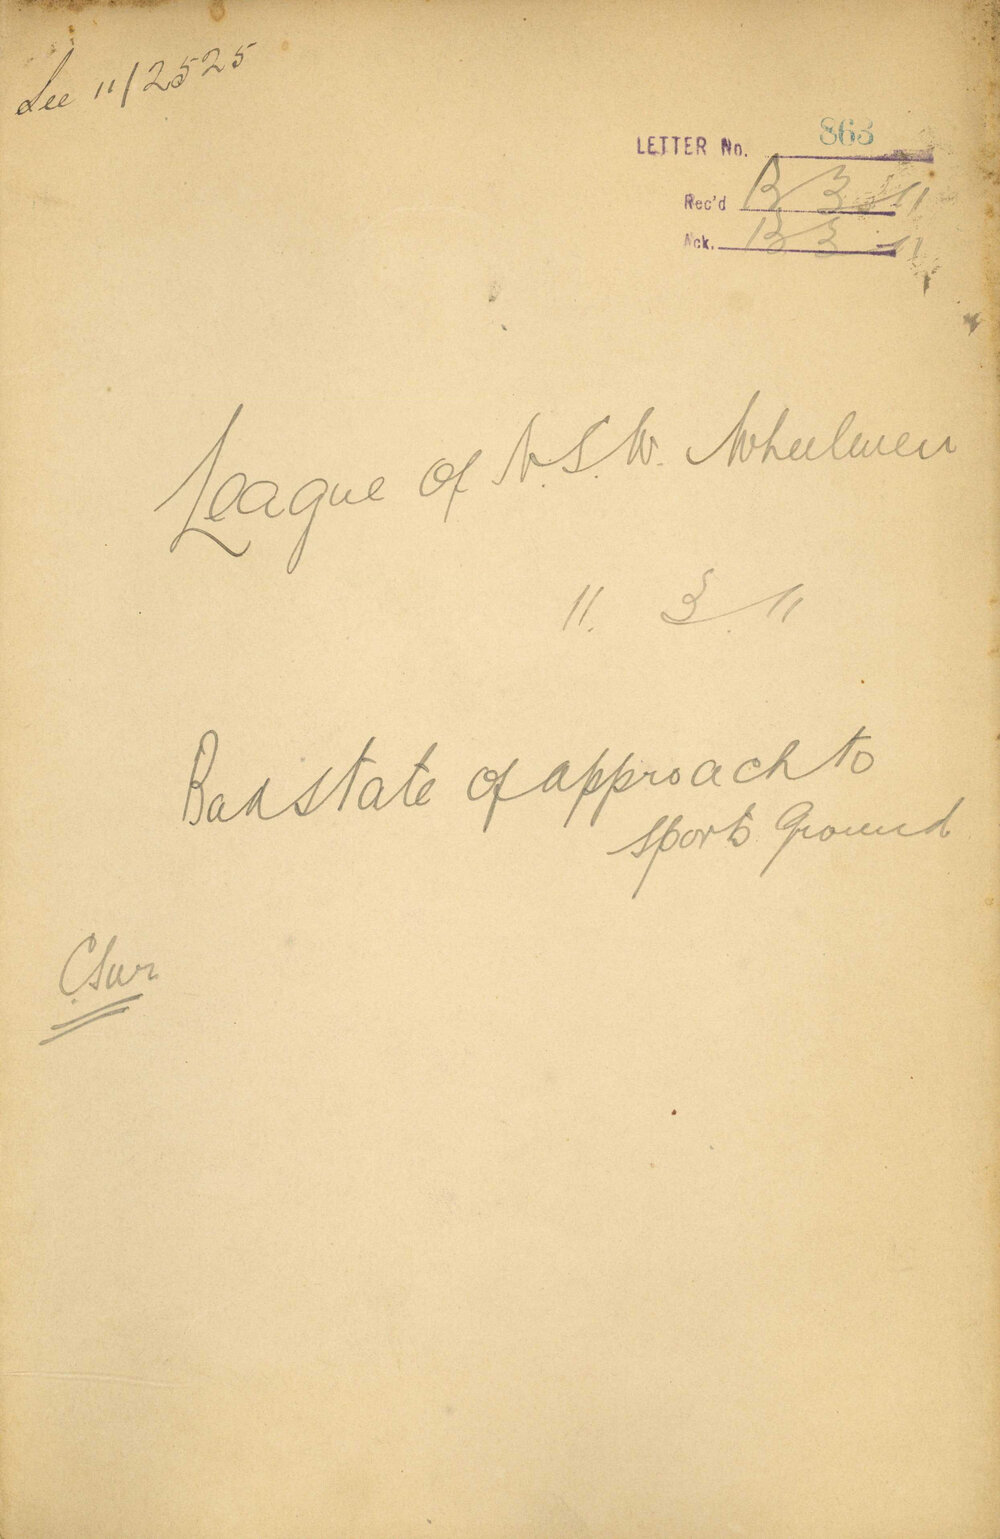 See 11/2525
LETTER No. 863
Rec'd 13 3 11
Ack. 13 3 11
League of N.S.W. Wheelmen
11. 3. 11
Bad state of approach to
Sports Ground
C. Sur